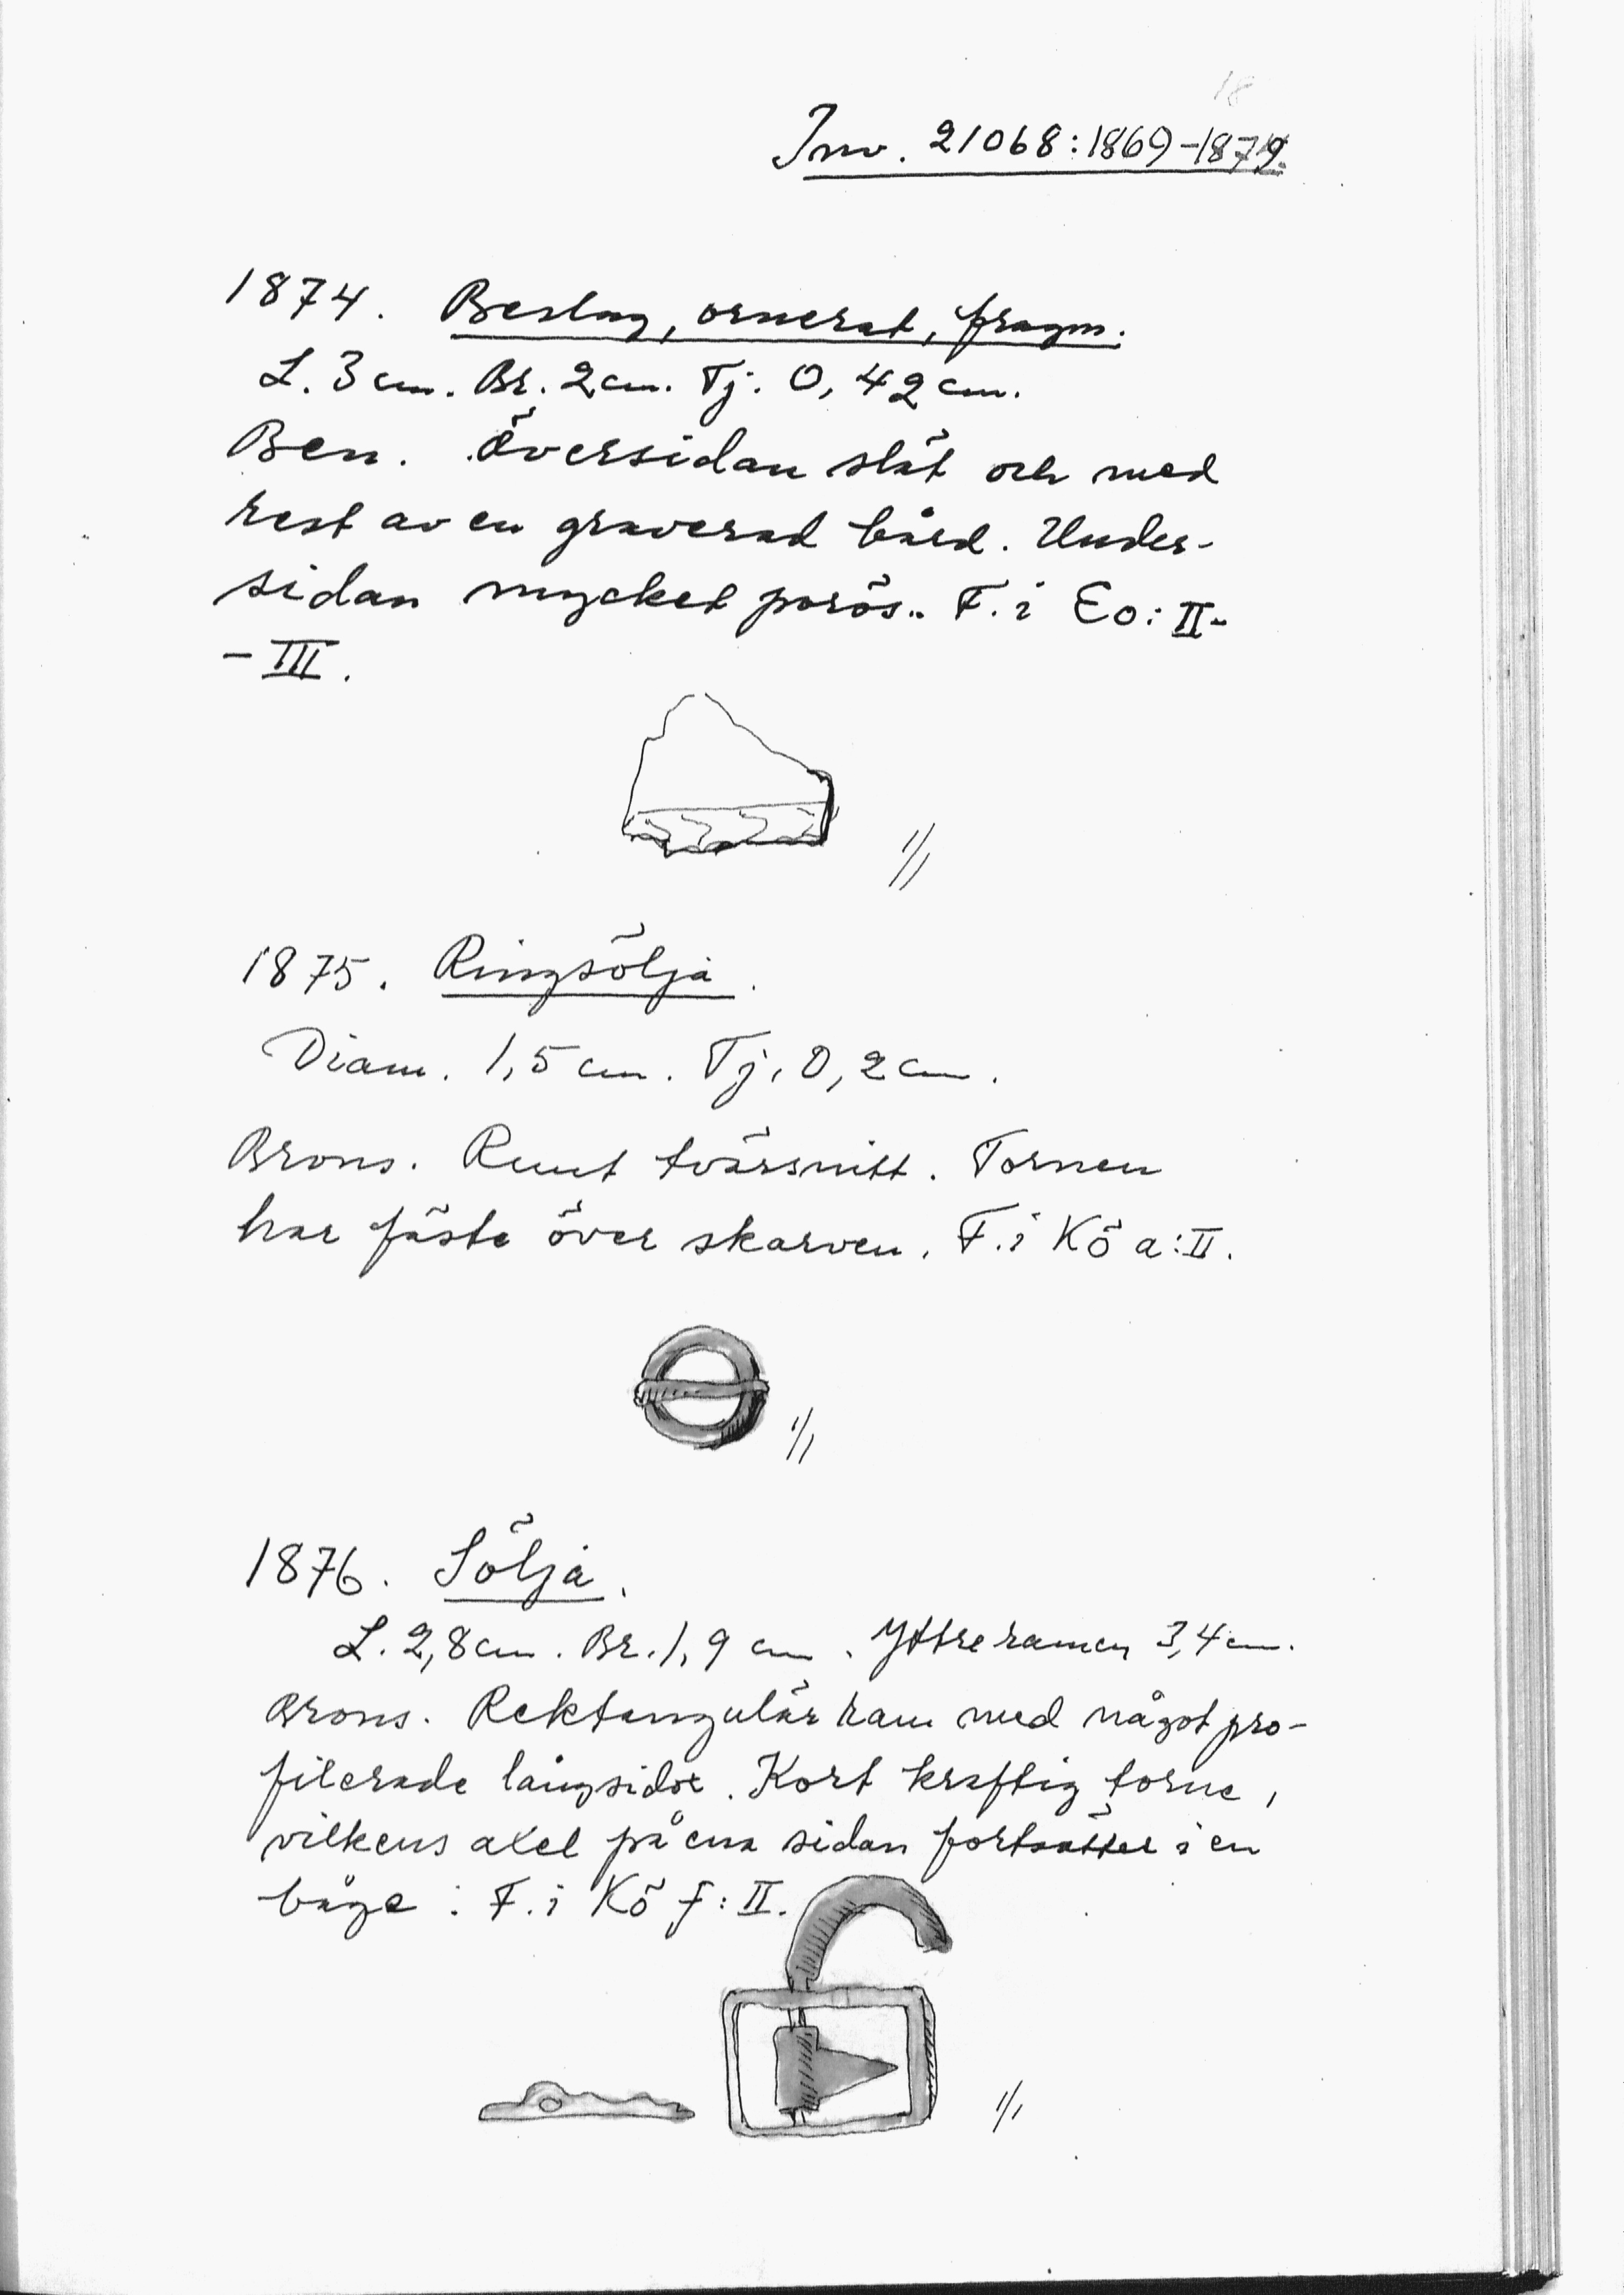 18
Inv. 21068:1869-1879.
1874. Beslag, ornerat, fragm.
L. 3 cm. Br. 2 cm. Tj. 0,42 cm.
Ben. Översidan slät och med
rest av en graverad bård. Under-
sidan mycket porös. F. i Eo: II-
- III.
1/1
1875. Ringsölja.
Diam. 1,5 cm. Tj. 0,2 cm.
Brons. Runt tvärsnitt. Tornen
har fäste över skarven. F. i Kö a: II.
1/1
1876. Sölja.
L. 2,8 cm. Br. 1,9 cm. Yttre ramen 3,4 cm.
Brons. Rektangulär ram med något pro-
filerade långsidor. Kort kraftig torne,
vilkens axel på ena sidan fortsätter i en
båge. F. i Kö f: II.
1/1